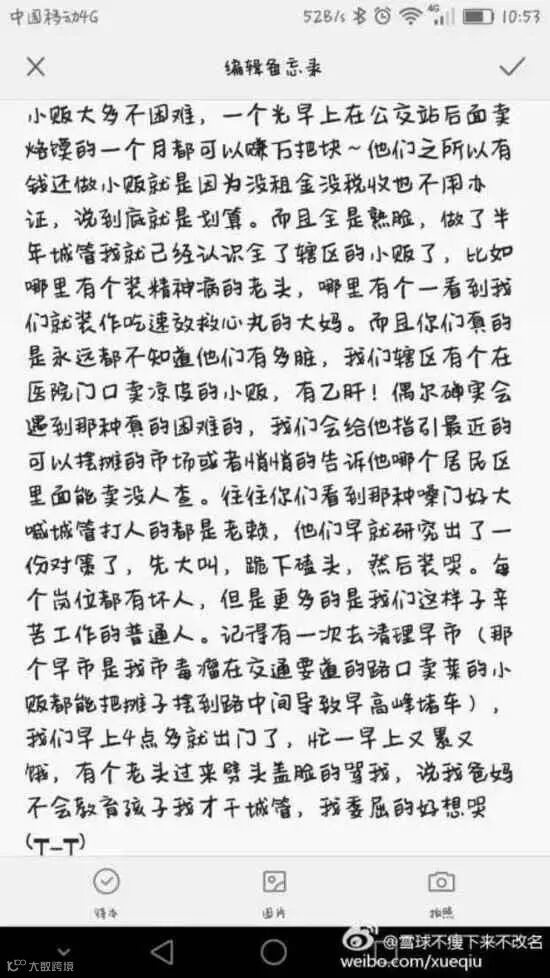 中国移动4G 52B/s 4G 10:53
编辑备忘录
小贩大多不困难，一个光早上在公交站后面卖
烙馍的一个月都可以赚万把块～他们之所以有
钱还做小贩就是因为没租金没税收也不用办
证，说到底就是划算。而且全是熟脸，做了半
年城管我就已经认识全了辖区的小贩了，比如
哪里有个装精神病的老头，哪里有个一看到我
们就装作吃速效救心丸的大妈。而且你们真的
是永远都不知道他们有多脏，我们辖区有个在
医院门口卖凉皮的小贩，有乙肝！偶尔确实会
遇到那种真的困难的，我们会给他指引最近的
可以摆摊的市场或者悄悄的告诉他哪个居民区
里面能卖没人查。往往你们看到那种嗓门好大
喊城管打人的都是老赖，他们早就研究出了一
份对策了，先大叫，跪下磕头，然后装哭。每
个岗位都有坏人，但是更多的是我们这样子辛
苦工作的普通人。记得有一次去清理早市（那
个早市是我市毒瘤在交通要道的路口卖菜的小
贩都能把摊子摆到路中间导致早高峰堵车），
我们早上4点多就出门了，忙一早上又累又
饿，有个老头过来劈头盖脸的骂我，说我爸妈
不会教育孩子我才干城管，我委屈的好想哭
(┳_┳)
待办 图片 拍照
@雪球不瘦下来不改名
weibo.com/xueqiu
大数跨境